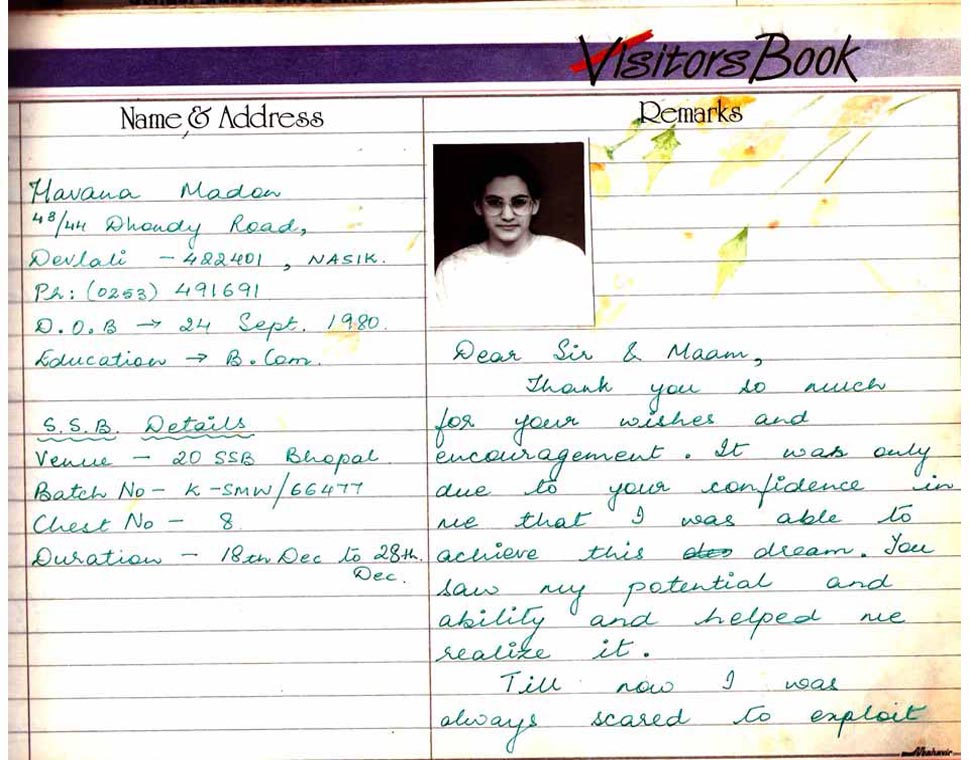 Visitors Book
Name & Address
Havana Madon
48/44 Dhondy Road,
Devlali - 422401, NASIK.
Ph: (0253) 491691
D.O.B → 24 Sept. 1980.
Education → B.Com.
S.S.B. Details
Venue - 20 SSB Bhopal
Batch No - K-SMW/66477
Chest No - 8
Duration - 18th Dec to 28th
Dec.
Remarks
Dear Sir & Maam,
Thank you so much
for your wishes and
encouragement. It was only
due to your confidence in
me that I was able to
achieve this dream. You
saw my potential and
ability and helped me
realize it.
Till now I was
always scared to exploit